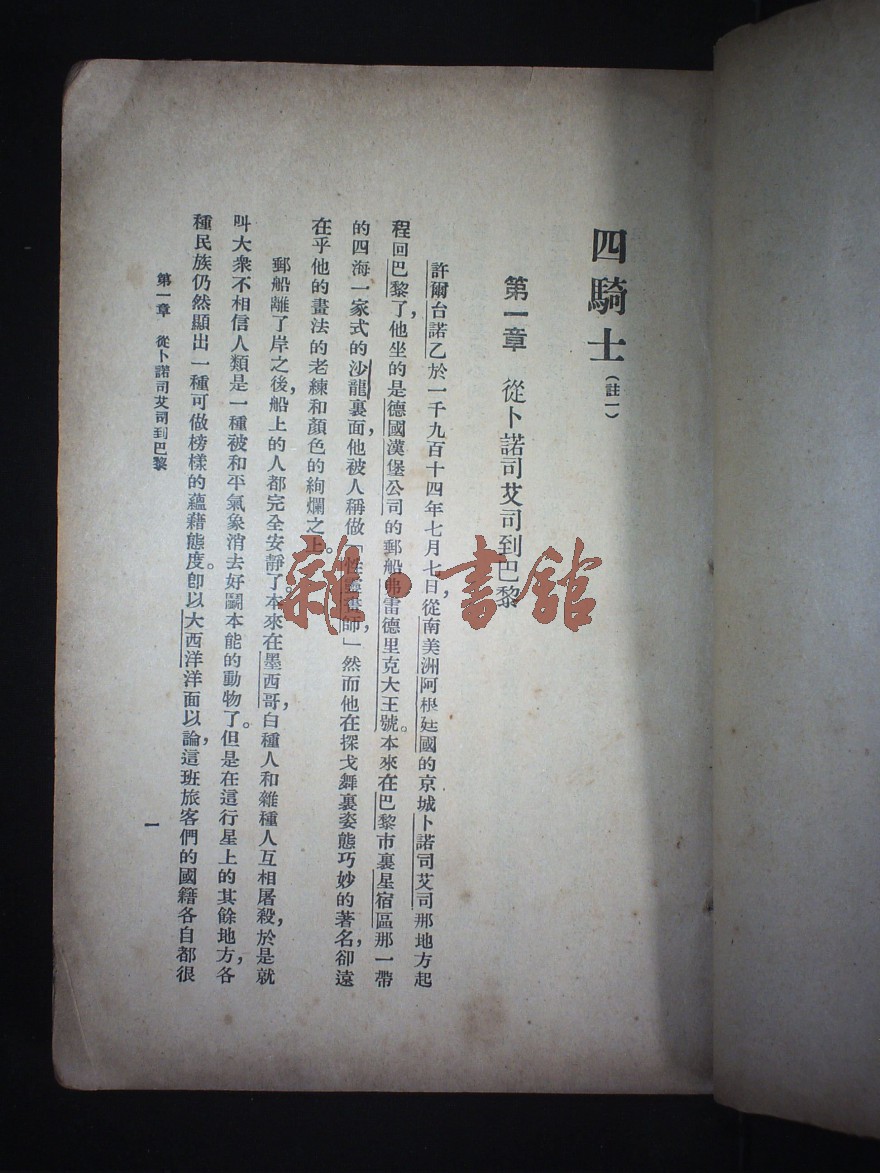 四騎士（註一）
第一章　從卜諾司艾司到巴黎
許爾台諾乙於一千九百十四年七月七日，從南美洲阿根廷國的京城卜諾司艾司那地方起
程回巴黎了，他坐的是德國漢堡公司的郵船弗雷德里克大王號。本來在巴黎市裏星宿區那一帶
的四海一家式的沙龍裏面，他被人稱做「性靈畫師」，然而他在探戈舞裏姿態巧妙的著名，卻遠
在乎他的畫法的老練和顏色的絢爛之上。
郵船離了岸之後，船上的人都完全安靜了。本來在墨西哥，白種人和雜種人互相屠殺，於是就
叫大衆不相信人類是一種被和平氣象消去好鬭本能的動物了。但是在這行星上的其餘地方，各
種民族仍然顯出一種可做榜樣的蘊藉態度。卽以大西洋洋面以論，這班旅客們的國籍各自都很
第一章　從卜諾司艾司到巴黎
一
雜·書舘